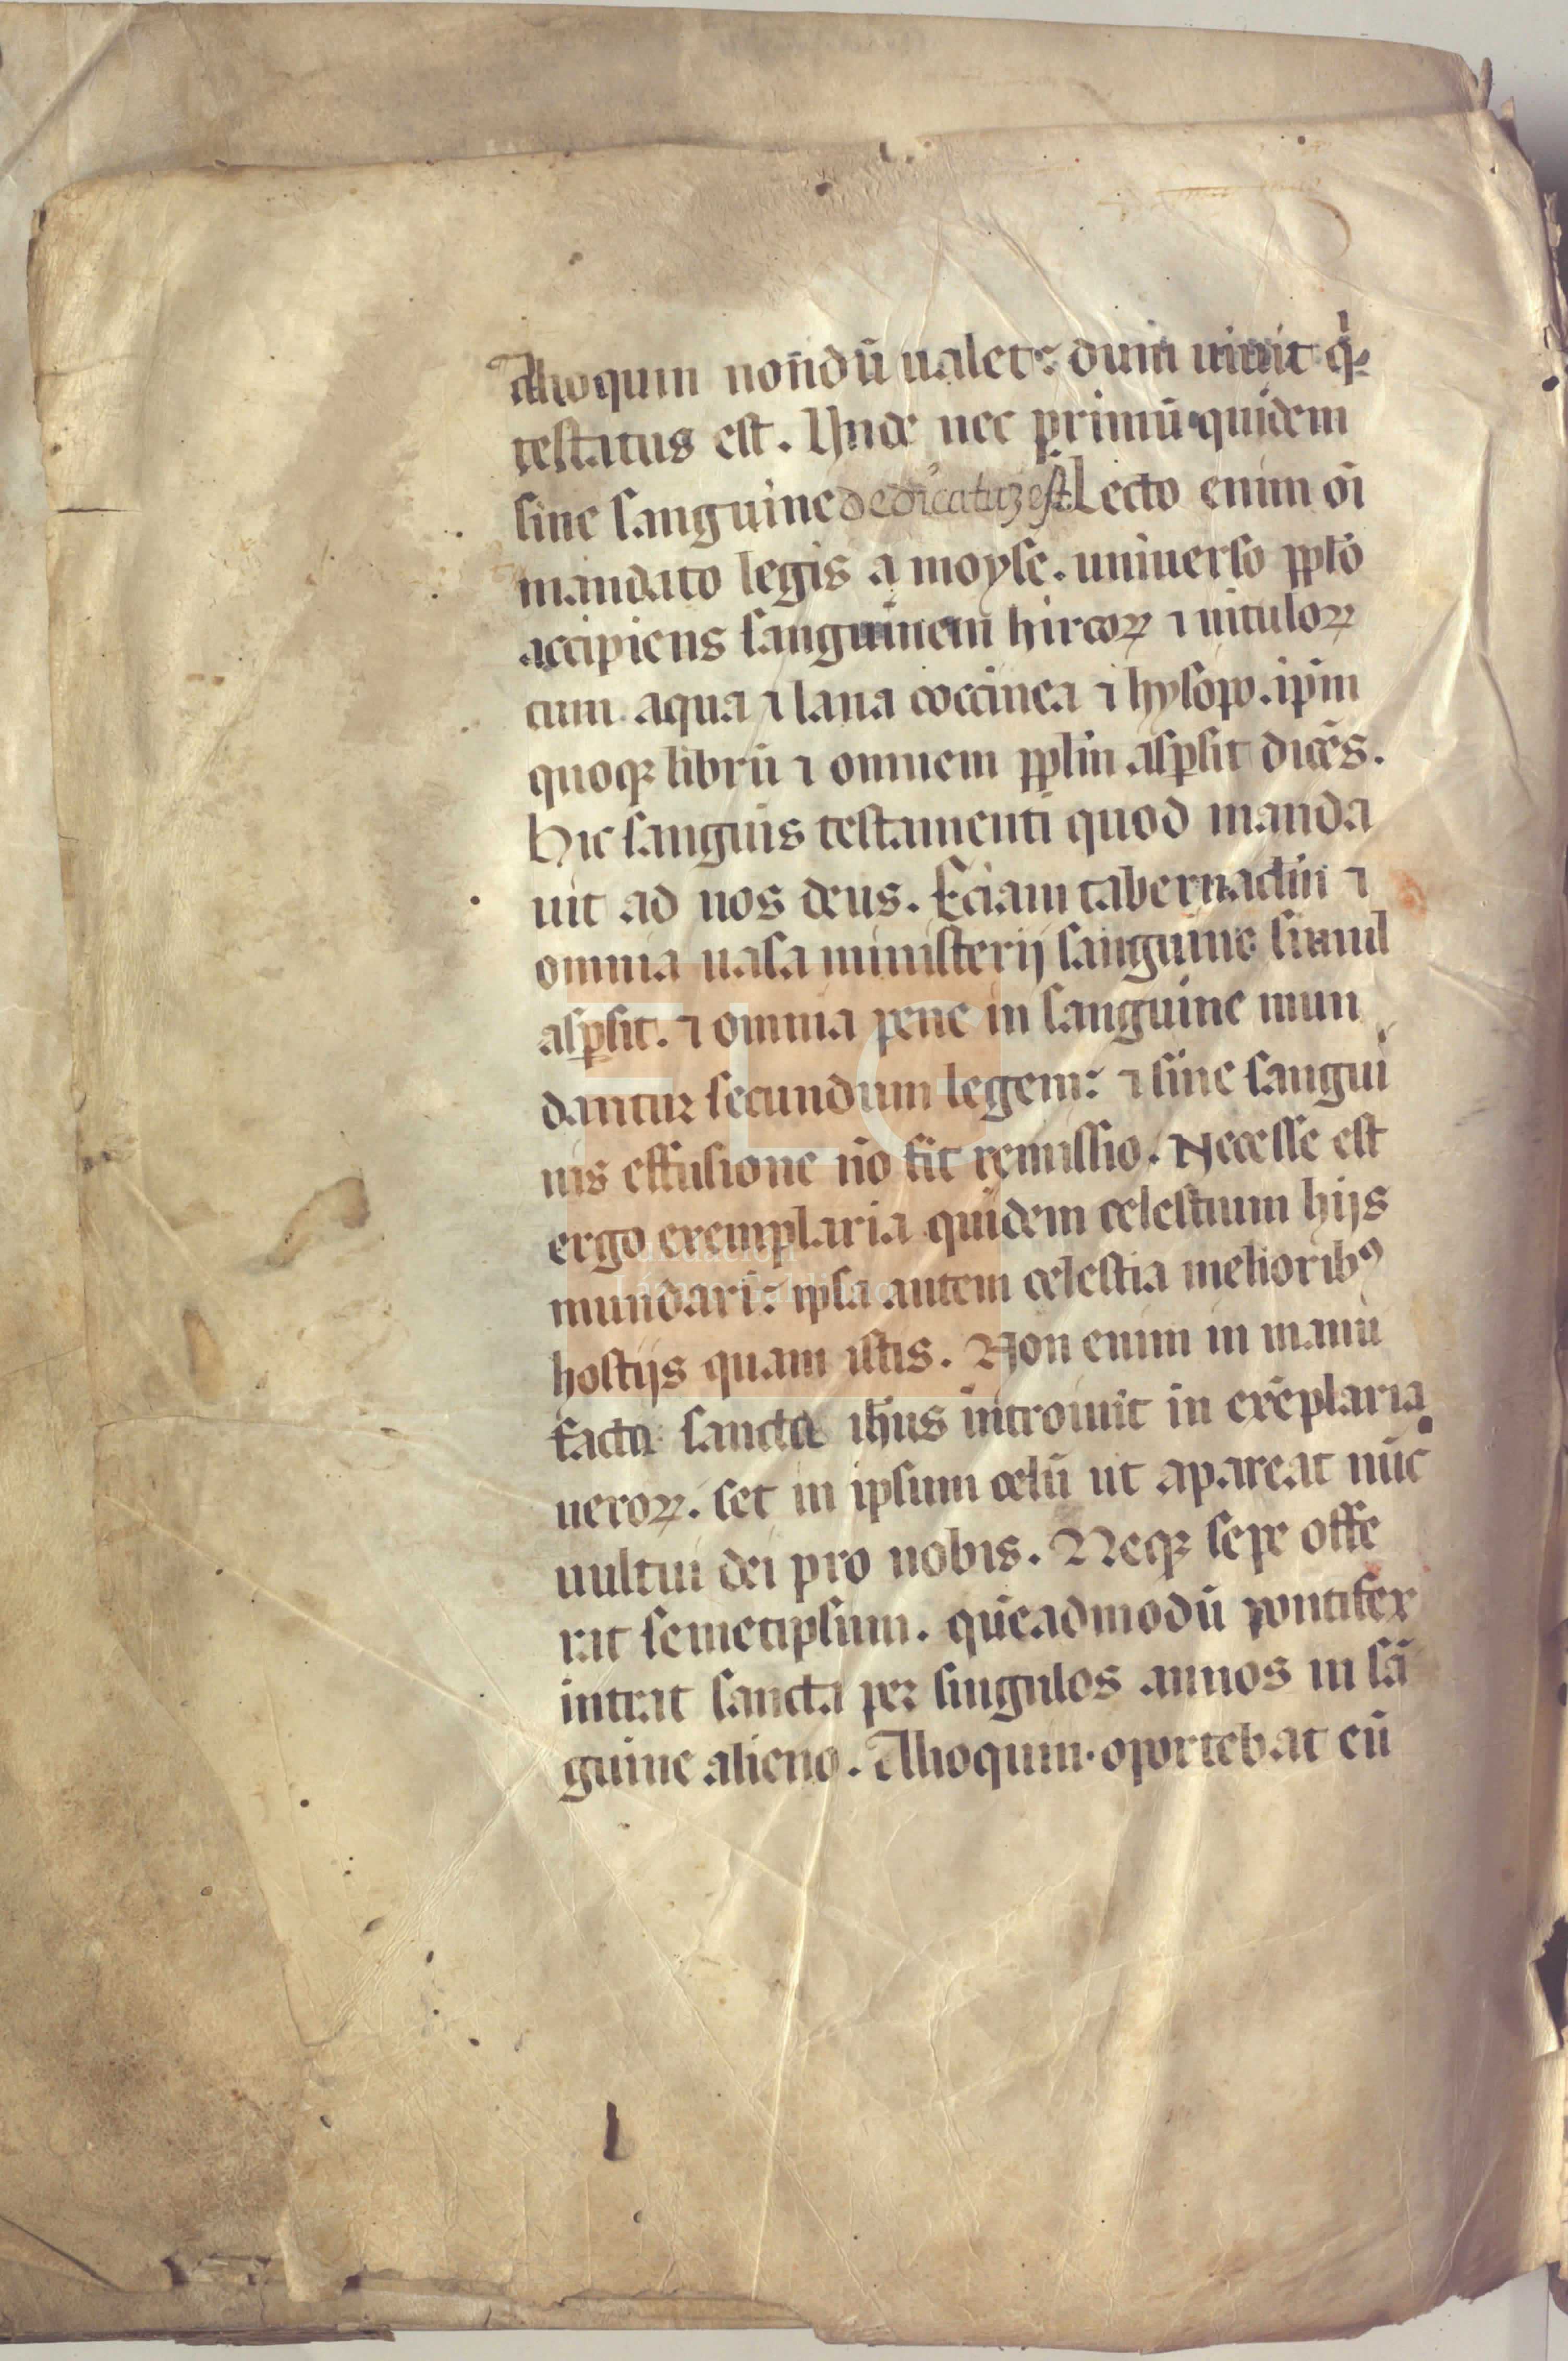 Alioquin nondū ualet: dum uiuit q̇
testatus est. Unde nec primū quidem
sine sanguine dedicatuz est. Lecto enim oī
mandato legis a moyse. uniuerso pplo̅
accipiens sanguinem hircoꝝ ⁊ uituloꝝ
cum aqua ⁊ lana coccinea ⁊ hysopo. ipm̅
quoqꝫ librū ⁊ omnem pplm̅ asꝑsit dicēs.
Hic sanguis testamenti quod manda
uit ad nos deus. Eciam tabernaclm̅ ⁊
omnia uasa ministerij sanguine simul
asꝑsit. ⁊ omnia pene in sanguine mun
dantur secundum legem: ⁊ sine sangui
nis effusione nō fit remissio. Necesse est
ergo exemplaria quidem celestium hijs
mundari: ipsa autem celestia melioribꝰ
hostijs quam istis. Non enim in manu
facta sancta ihūs introiuit in exēplaria
ueroꝝ. set in ipsum celū ut apareat nūc
uultui dei pro nobis. Neqꝫ sepe offe
rat semetipsum. quēadmodū pontifex
intrat sancta per singulos annos in sā
guine alieno. Alioquin oportebat eū
FLC
Fundación